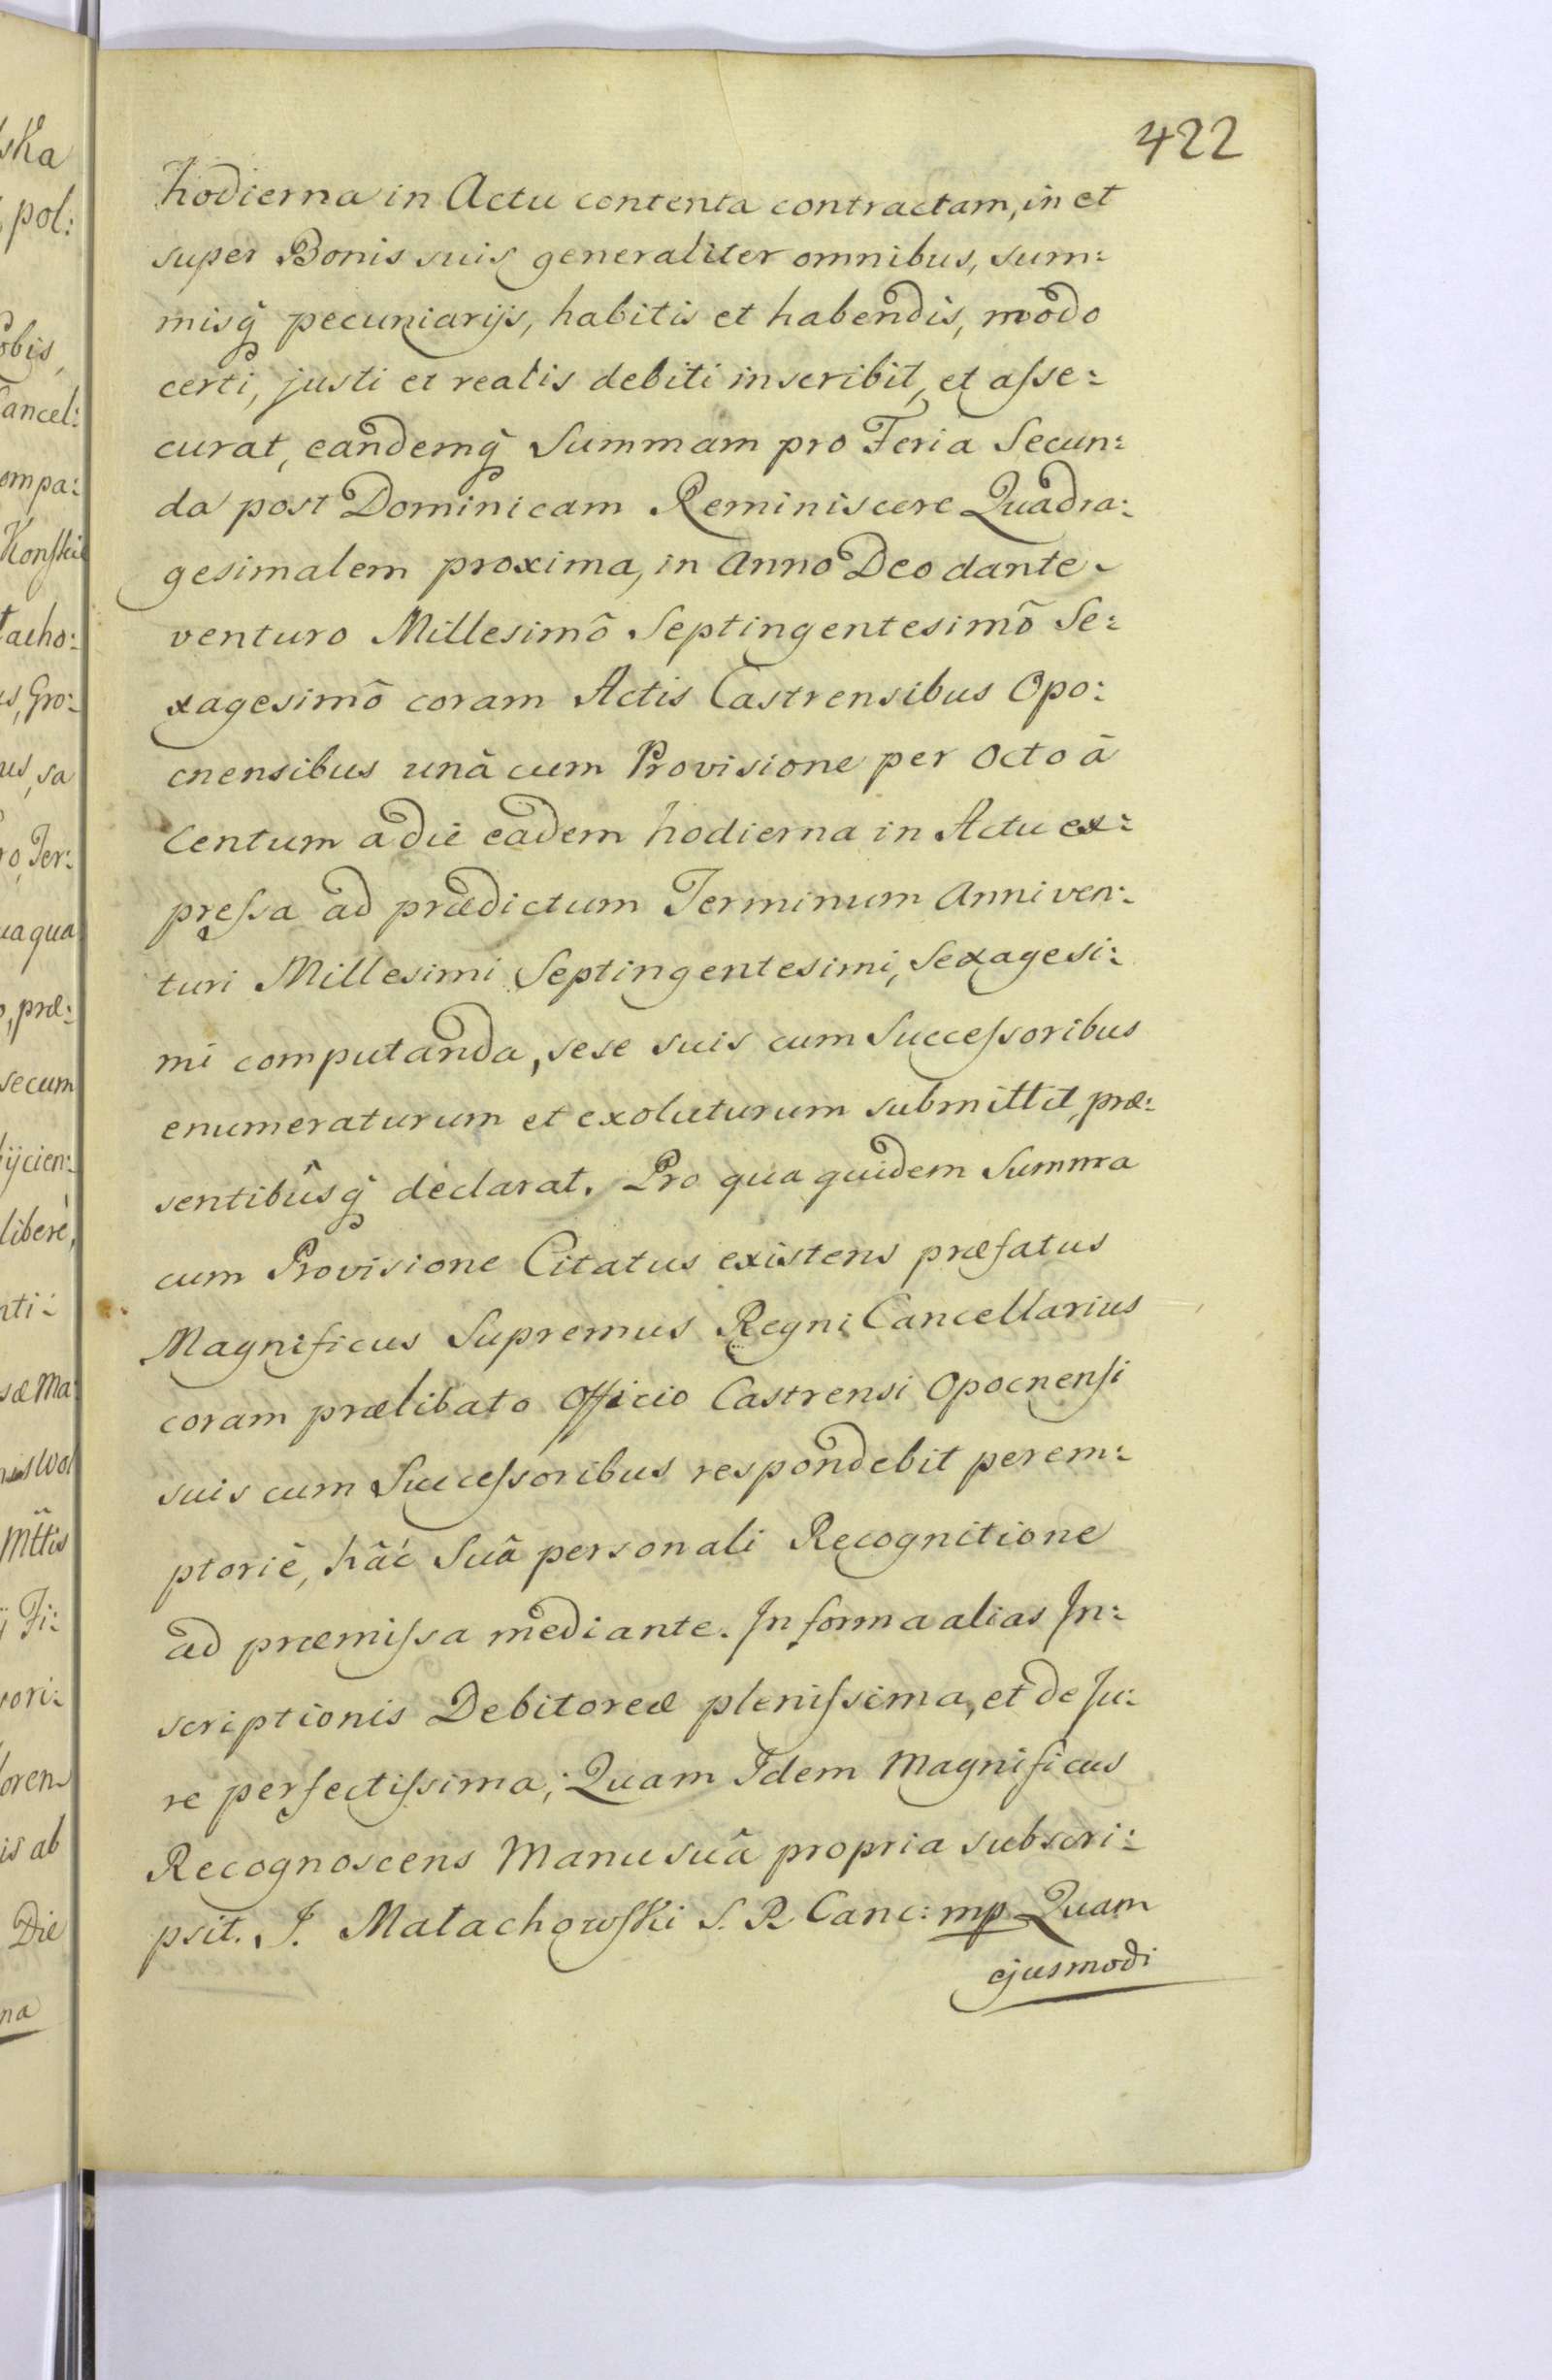 422
hodierna in Actu contenta contractam, in et
super Bonis suis generaliter omnibus, sum:
misq̃ pecuniarijs, habitis et habendis, modo
certi, justi et realis debiti inscribit, et aſse:
curat, eandemq̃ Summam pro Feria Secun:
da post Dominicam Reminiscere Quadra:
gesimalem proxima, in Anno Deo dante
venturo Millesimõ Septingentesimõ Se:
xagesimõ coram Actis Castrensibus Opo:
cnensibus unà cum Provisione per Octo à
Centum a die eadem hodierna in Actu ex:
preſsa ad prædictum Terminum Anni ven:
turi Millesimi Septingentesimi, Sexagesi:
mi computanda, sese suis cum Succeſsoribus
enumeraturum et exoluturum submittit, præ:
sentibûsq̃ declarat. Pro qua quidem Summa
cum Provisione Citatus existens præfatus
Magnificus Supremus Regni Cancellarius
coram prælibato Officio Castrensi Opocnenſi
suis cum Succeſsoribus respondebit perem:
ptoriè, hâc Suâ personali Recognitione
ad præmiſsa mediante. In forma alias In:
scriptionis Debitoreæ pleniſsima, et de Ju:
re perfectiſsima; Quam Idem Magnificus
Recognoscens Manu suâ propria subscri:
psit. J. Małachowſki S. R. Canc: mp Quam
ejusmodi